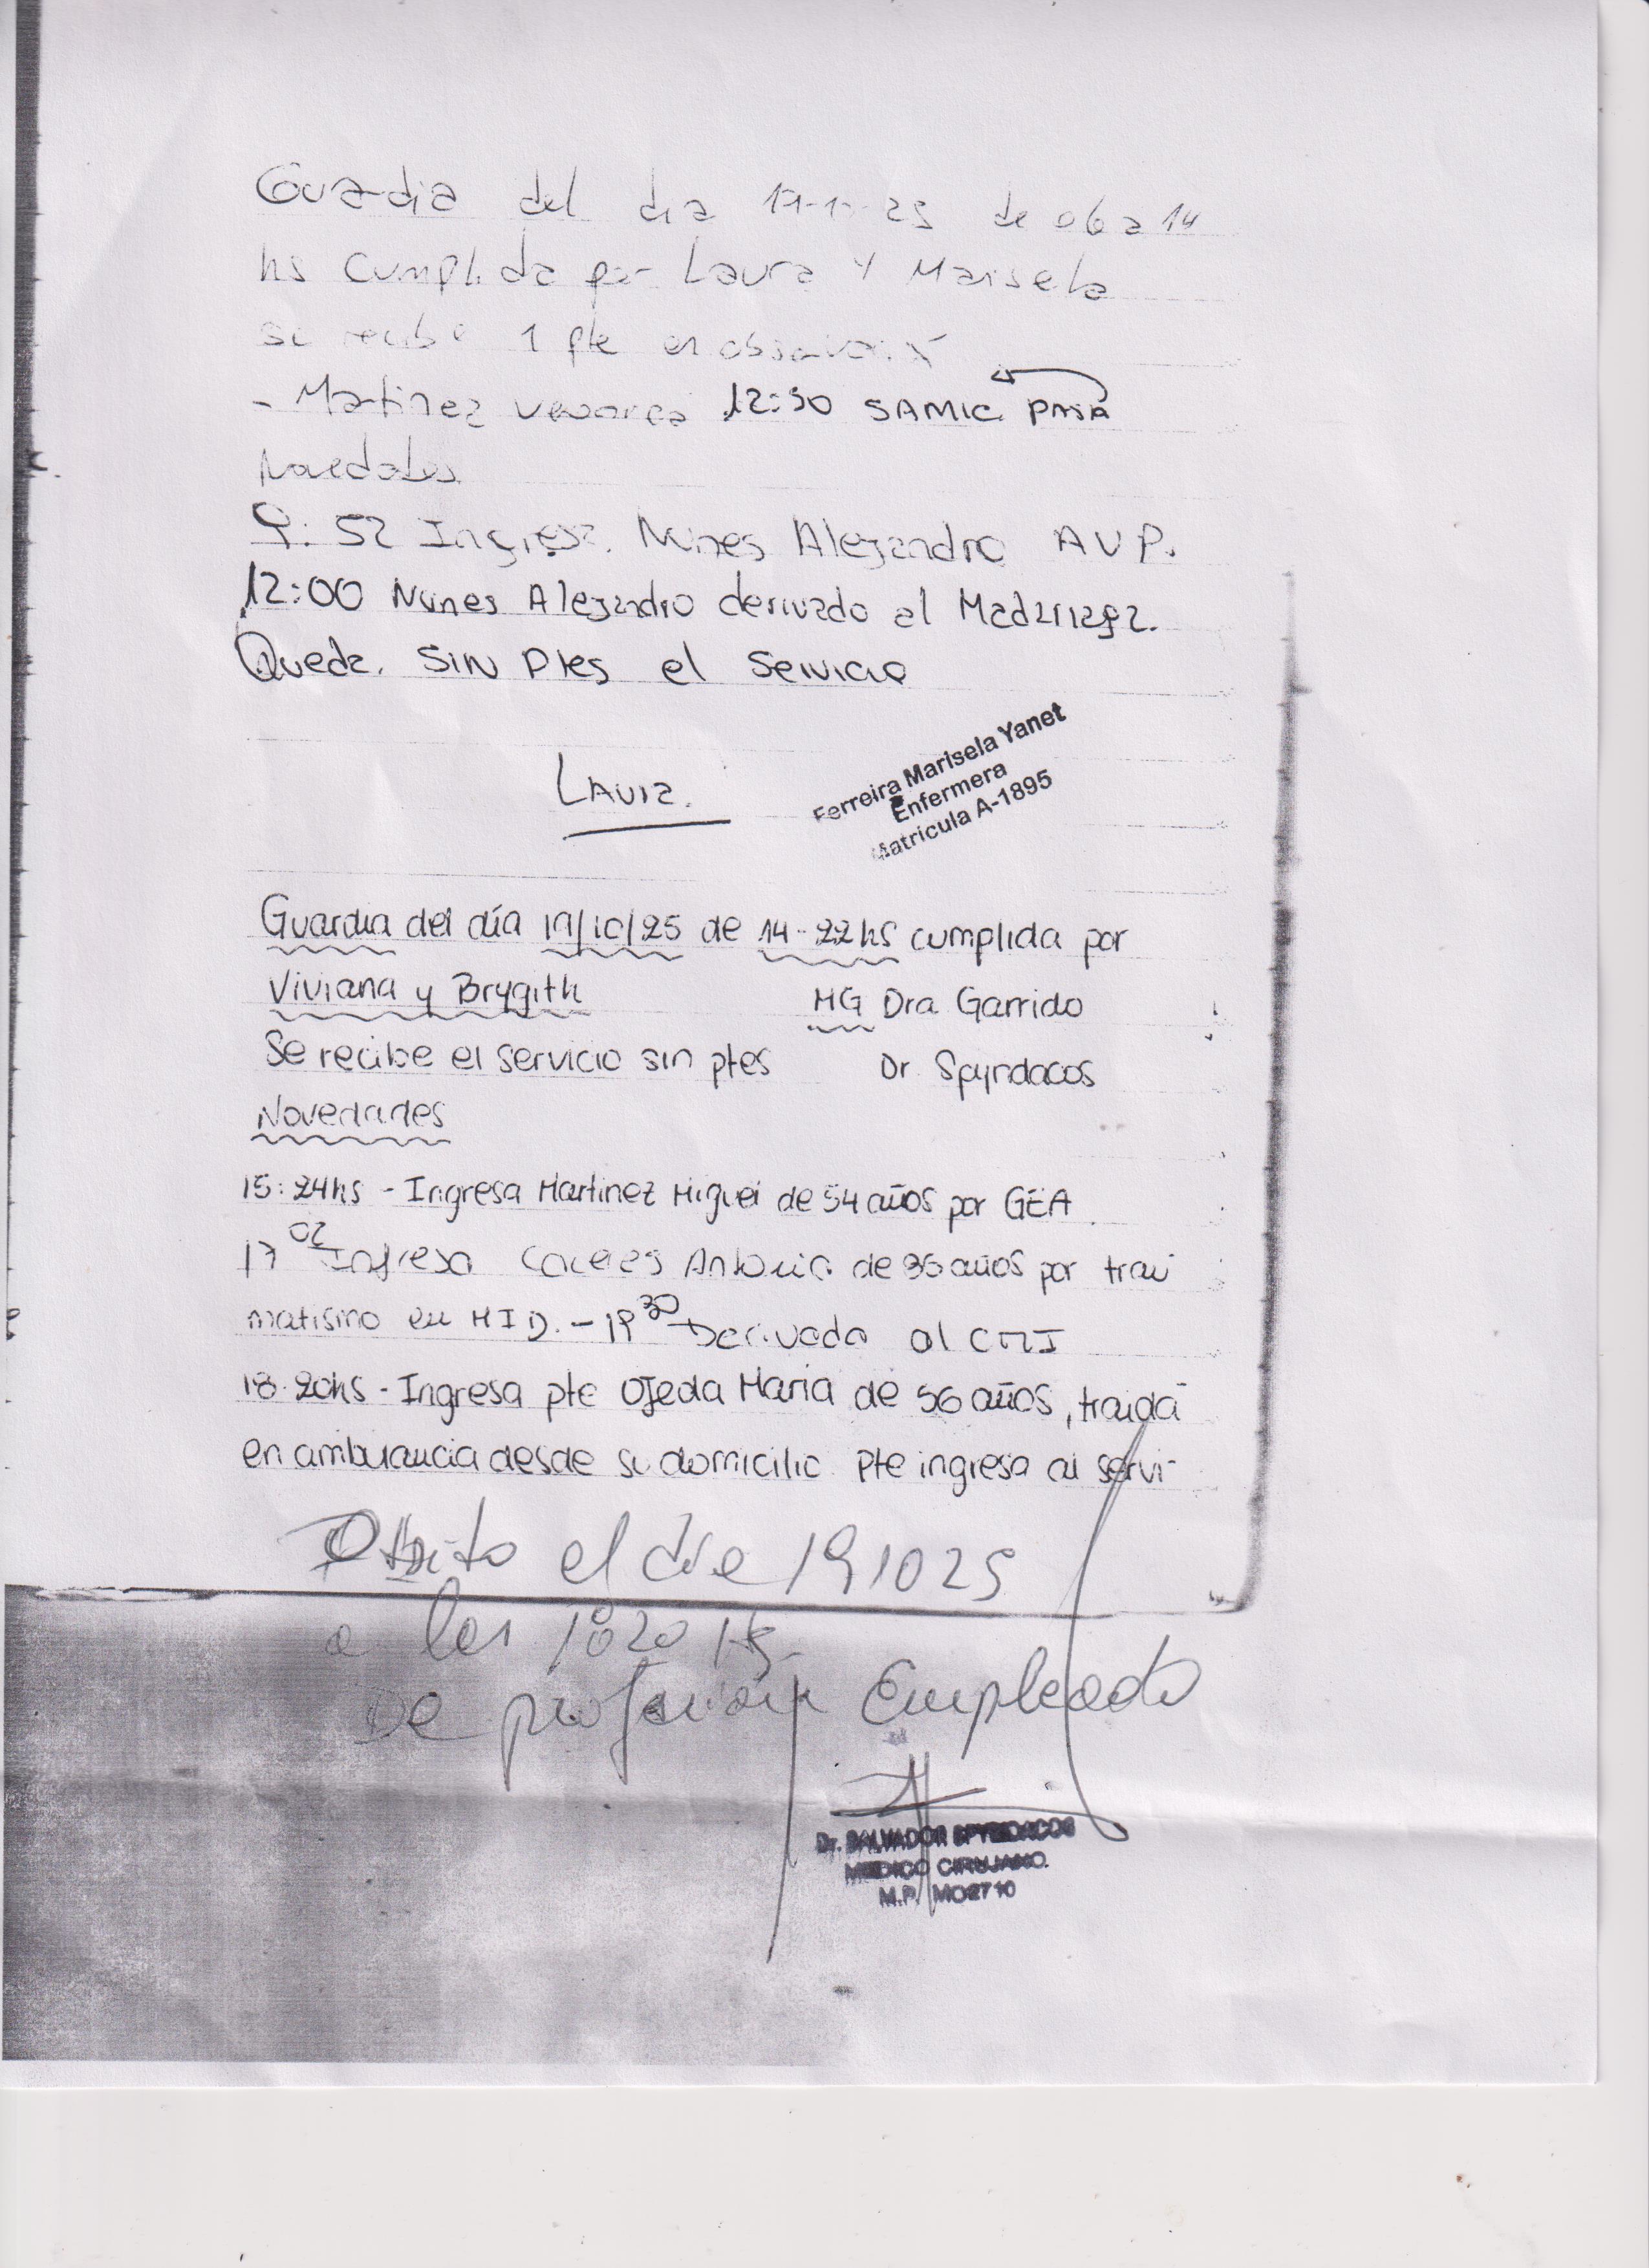 Guardia del dia 19-10-25 de 06 a 14
hs cumplida por Laura Y Marisela
se recibe 1 pte en observación
- Martinez 12:30 SAMIC PASA
Novedades
9:52 Ingresa. Nunes Alejandro AVP.
12:00 Nunes Alejandro derivado al Madariaga.
Queda. SIN Ptes el Servicio
Laura.
Ferreira Marisela Yanet
Enfermera
Matrícula A-1895
Guardia del día 19/10/25 de 14-22hs cumplida por
Viviana y Brygith MG Dra Garrido
Se recibe el servicio sin ptes Dr Spyridacos
Novedades
15:24hs - Ingresa Martinez Miguel de 54 años por GEA.
17 02 Ingresa Caceres Antonia de 36 años por trau
matismo en MID. - 19 30 Derivada al CMI
18:20hs - Ingresa pte Ojeda Maria de 56 años, traida
en ambulancia desde su domicilio pte ingresa al servi-
Obito el dia 19 10 25
a las 1820 Hs
De profesión Empleado
Dr. SALVADOR SPYRIDACOS
MEDICO CIRUJANO
M.P. MO2710